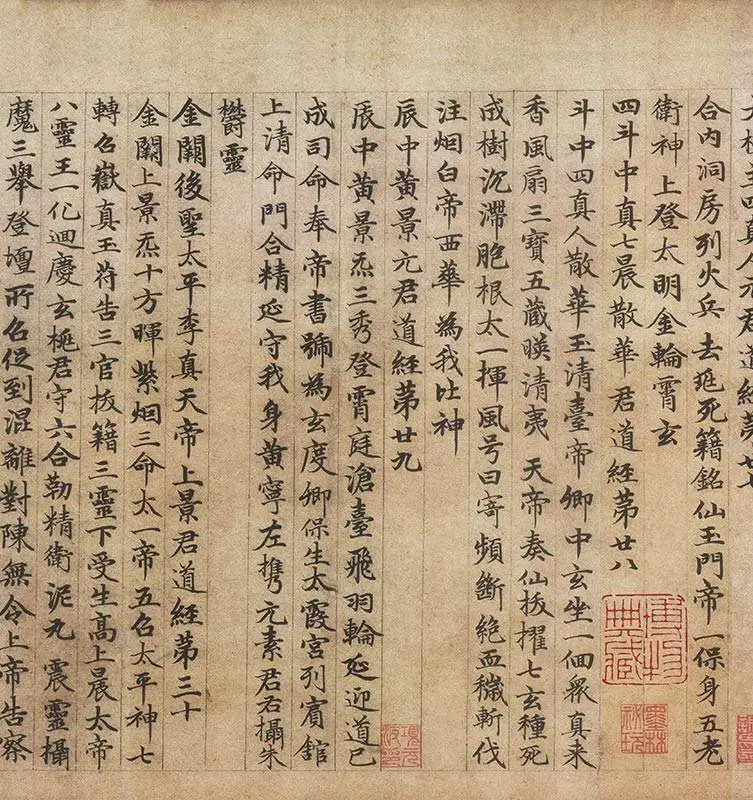 合內洞房列火兵去死籍銘仙玉門帝一保身五老
衛神上登太明金輪霄玄
四斗中真七晨散華君道經苐廿八
斗中四真人散華玉清臺帝卿中玄坐一迴眾真来
香風扇三寳五藏暎清夷天帝奏仙拔擢七玄種死
成樹沉滯胞根太一揮風号曰寄頻斷絶血穢斬伐
注烟白帝西華為我比神
辰中黄景元君道經苐廿九
辰中黄景炁三秀登霄庭滄臺飛羽輪延迎道已
成司命奉帝書號為玄度卿保生太霞宮列賓舘
上清命門合精延守我身黄寧左携元素君右攝朱
欝靈
金闕後聖太平李真天帝上景君道經苐三十
金闕上景炁十方暉紫烟三命太一帝五名太平神七
轉名嶽真玉苻告三官拔籍三靈下受生髙上晨太帝
八靈王一化迴慶玄君守六合勒精衛泥丸震靈攝
魔三舉登壇所名促到混離對陳無令上帝告察